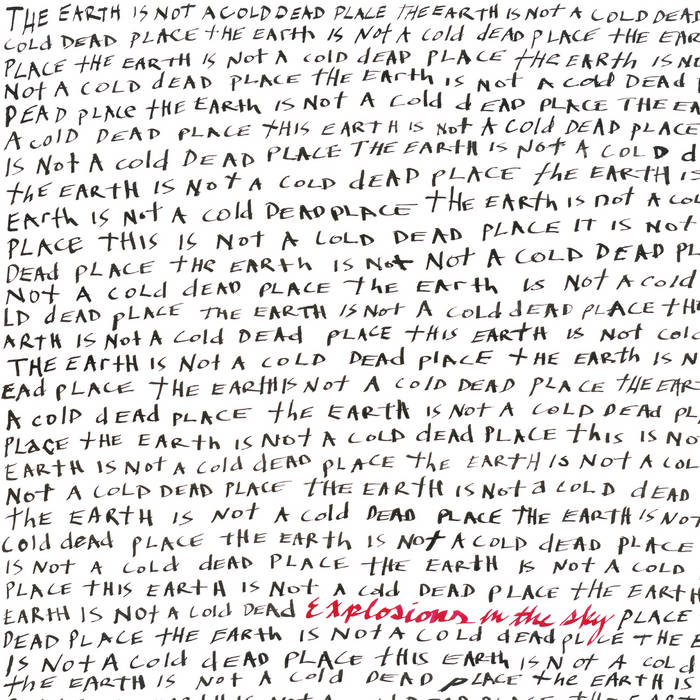 THE EARTH IS NOT A COLD DEAD PLACE THE EARTH IS NOT A COLD DEAD
COLD DEAD PLACE THE EARTH IS NOT A COLD DEAD PLACE THE EAR
PLACE THE EARTH IS NOT A COLD DEAD PLACE THE EARTH IS NO
NOT A COLD DEAD PLACE THE EARTH IS NOT A COLD DEAD
DEAD PLACE THE EARTH IS NOT A COLD DEAD PLACE THE EA
A COLD DEAD PLACE THIS EARTH IS NOT A COLD DEAD PLACE
IS NOT A COLD DEAD PLACE THE EARTH IS NOT A COLD D
THE EARTH IS NOT A COLD DEAD PLACE THE EARTH IS
EARTH IS NOT A COLD DEAD PLACE THE EARTH IS NOT A COL
PLACE THIS IS NOT A COLD DEAD PLACE IT IS NOT
DEAD PLACE THE EARTH IS NOT NOT A COLD DEAD PL
NOT A COLD DEAD PLACE THE EARTH IS NOT A COLD
LD DEAD PLACE THE EARTH IS NOT A COLD DEAD PLACE TH
ARTH IS NOT A COLD DEAD PLACE THIS EARTH IS NOT COL
THE EARTH IS NOT A COLD DEAD PLACE THE EARTH IS N
EAD PLACE THE EARTH IS NOT A COLD DEAD PLACE THE EAR
A COLD DEAD PLACE THE EARTH IS NOT A COLD DEAD PL
PLACE THE EARTH IS NOT A COLD DEAD PLACE THIS IS NO
EARTH IS NOT A COLD DEAD PLACE THE EARTH IS NOT A COL
NOT A COLD DEAD PLACE THE EARTH IS NOT A COLD DEAD
THE EARTH IS NOT A COLD DEAD PLACE THE EARTH IS NOT
COLD DEAD PLACE THE EARTH IS NOT A COLD DEAD PLACE
IS NOT A COLD DEAD PLACE THE EARTH IS NOT A COLD
PLACE THIS EARTH IS NOT A COLD DEAD PLACE THE EARTH
EARTH IS NOT A COLD DEAD Explosions in the sky PLACE
DEAD PLACE THE EARTH IS NOT A COLD DEAD PLACE THE E
IS NOT A COLD DEAD PLACE THIS EARTH IS NOT A COLD
THE EARTH IS NOT A COLD DEAD PLACE THE EARTH IS